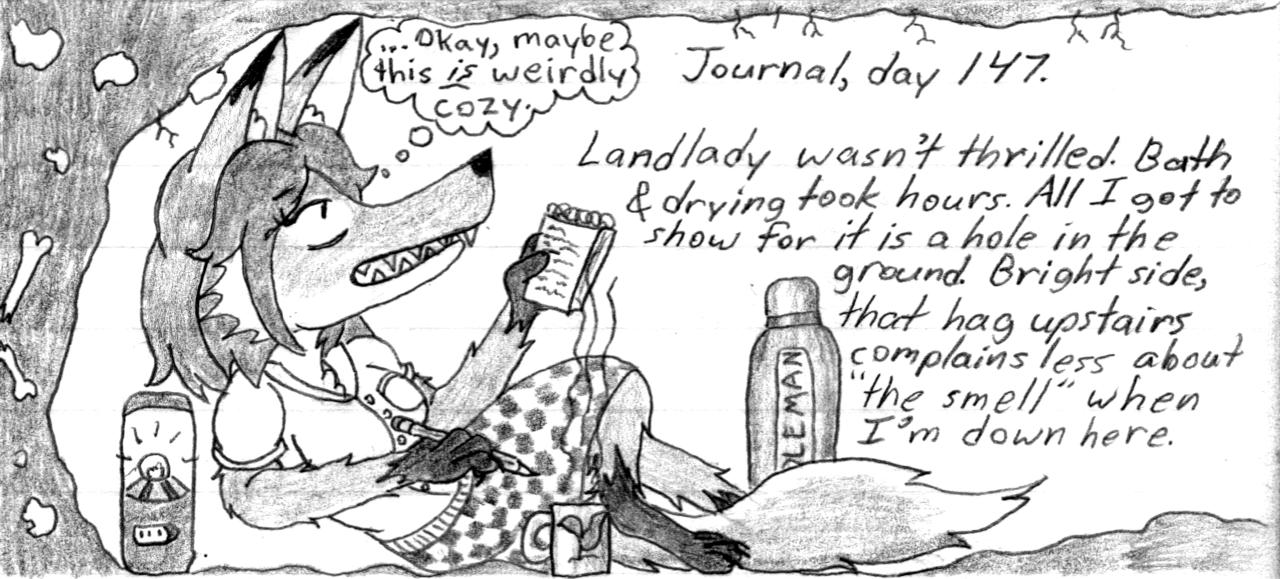 ...Okay, maybe
this is weirdly
cozy.
Journal, day 147.
Landlady wasn't thrilled. Bath
& drying took hours. All I got to
show for it is a hole in the
ground. Bright side,
that hag upstairs
complains less about
"the smell" when
I'm down here.
OLEMAN